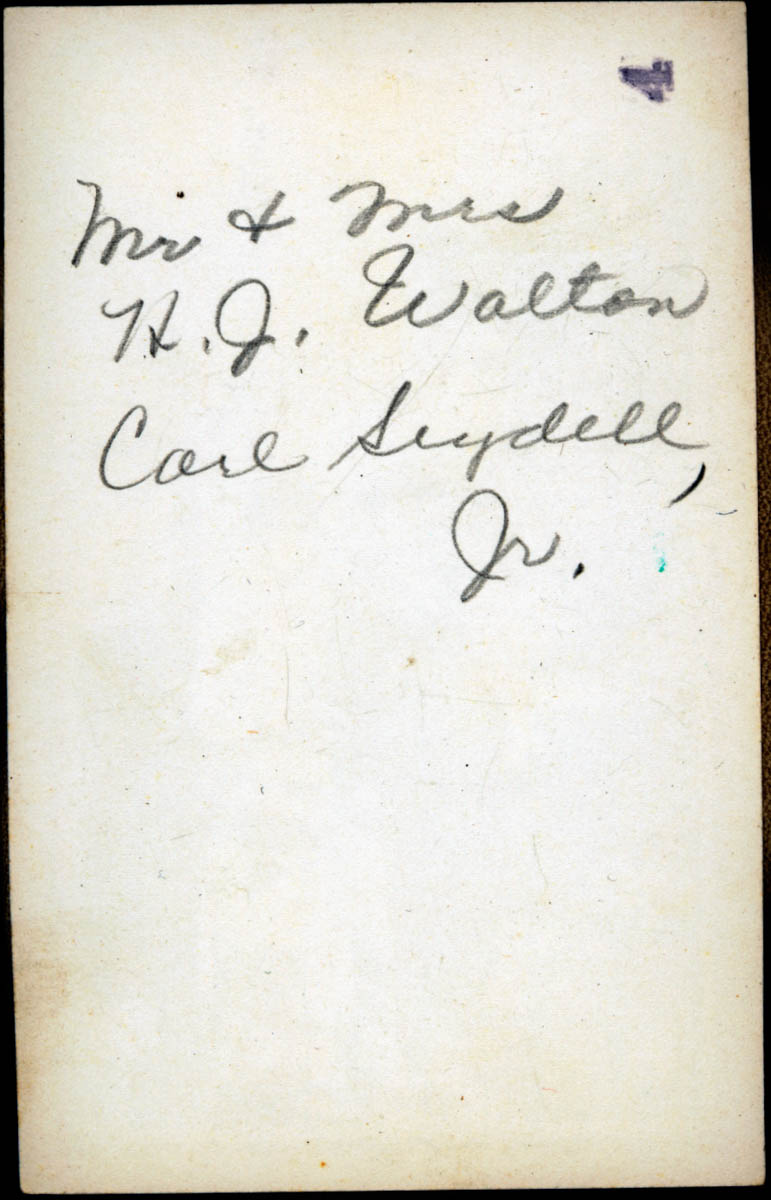 4
Mr & Mrs
H. J. Walton
Carl Seydell,
Jr.